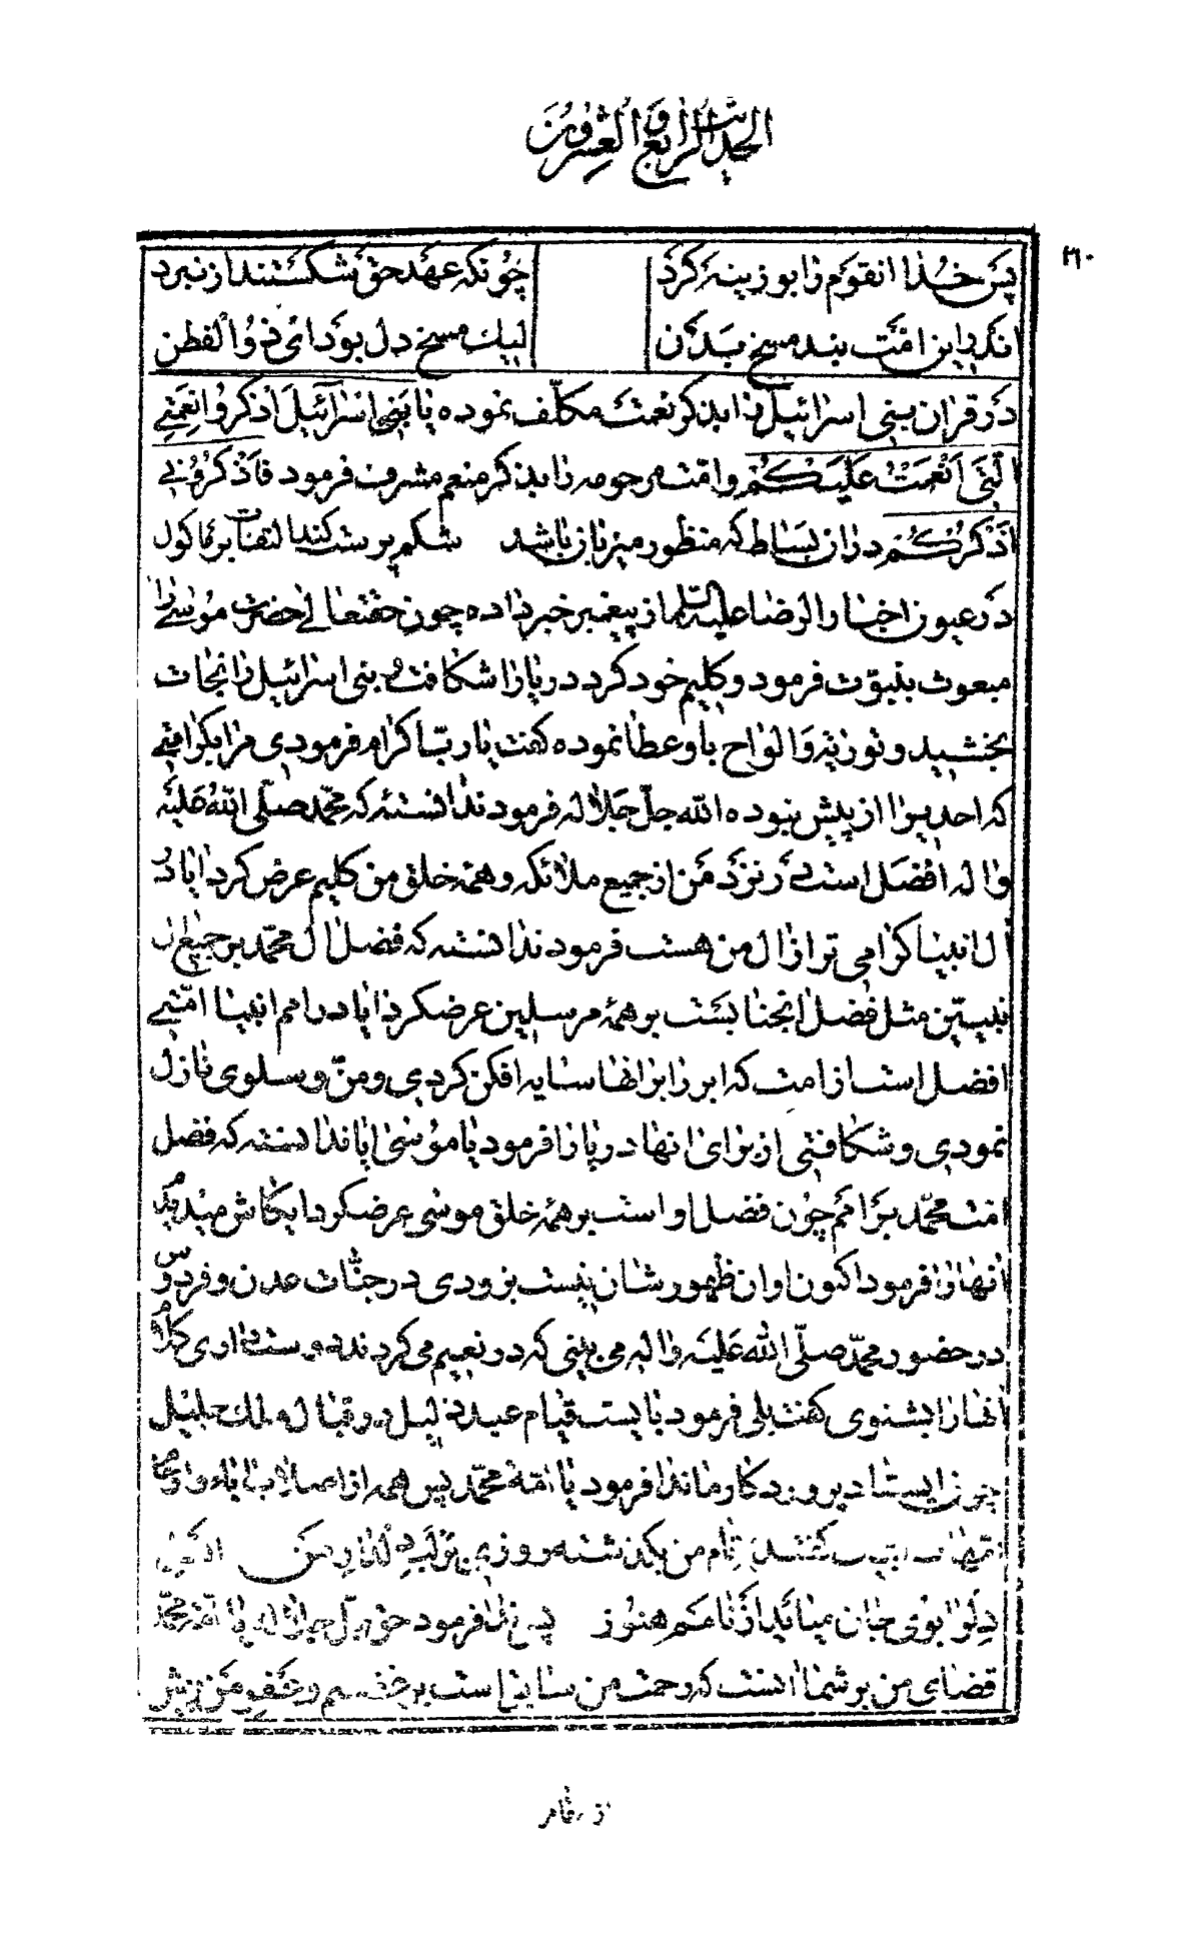 الحدیث الرابع و العشرون
۳۶۰
پس خدا انقوم را بوزینه کرد چونکه عهد حق شکستند از نبرد
اندراین امت نبد مسخ بدن لیك مسخ دل بود ای ذو الفطن
در قران بنی اسرائیل را بذکر نعمت مکلّف نموده یا بَنی اسرآئیلَ اذکُروا نِعمَتِیَ
الَّتی اَنْعَمْتُ عَلَیْکُمْ و امّت مرحومه را بذکر منعم مشرف فرمود فَاذْکُرُونی
اَذْکُرْکُمْ در ان بساط که منظور میزبان باشد شکم پرست کند التفات بر ماکول
در عیون اخبار الرضا علیه السّلم از پیغمبر خبر داده چون حقتعالی حضرت موسی را
مبعوث بنبوّت فرمود و کلیم خود کرد دریا را شکافت و بنی اسرائیل را نجات
بخشید و تورىة و الواح باو عطا نموده گفت یا ربّ اکرام فرمودی مرا بکرامتی
که احدیرا از پیش نبوده الله جلّ جلاله فرمود ندانسته که محمّد صلّی الله علیه
و اله افضل است در نزد من از جمیع ملائکه و همه خلق من کلیم عرض کرد ایا در
ال انبیا کرامی تر از ال من هست فرمود ندانسته که فضل ال محمّد بر جمیع ال
نبیّین مثل فضل انجنابست بر همه مرسلین عرضکرد ایا در امم انبیا امّتی
افضل است از امت که ابر را بر انها سایه افکن کردی و منّ و سلوی نازل
نمودی و شکافتی از برای انها دریا را فرمود یا موسی ایا ندانسته که فضل
امت محمّد بر امم چون فضل او است بر همه خلق موسی عرضکرد ایکاش میدیدم
انها را فرمود اکنون اوان ظهور شان نیست بزودی در جنّات عدن و فردوس
در حضور محمّد صلّی الله علیه و اله می بینی که در نعیم می کردند دوست داری کلام
انها را بشنوی گفت بلی فرمود بایست قیام عبد ذلیل در قبال ملك جلیل
چون ایستاد پروردگار ما ندا فرمود یا امّة محمّد پس همه از اصلاب اباء و ارحام
امّهات لبیك گفتند نام من بگذشته روزی بر لب دلدار من
دلرا بوی جان میاید از نامم هنوز پس ندا فرمود حق جل جلاله یا امّة محمّد
قضای من بر شما انست که رحمت من سابق است بر خشم و عفو من پیش